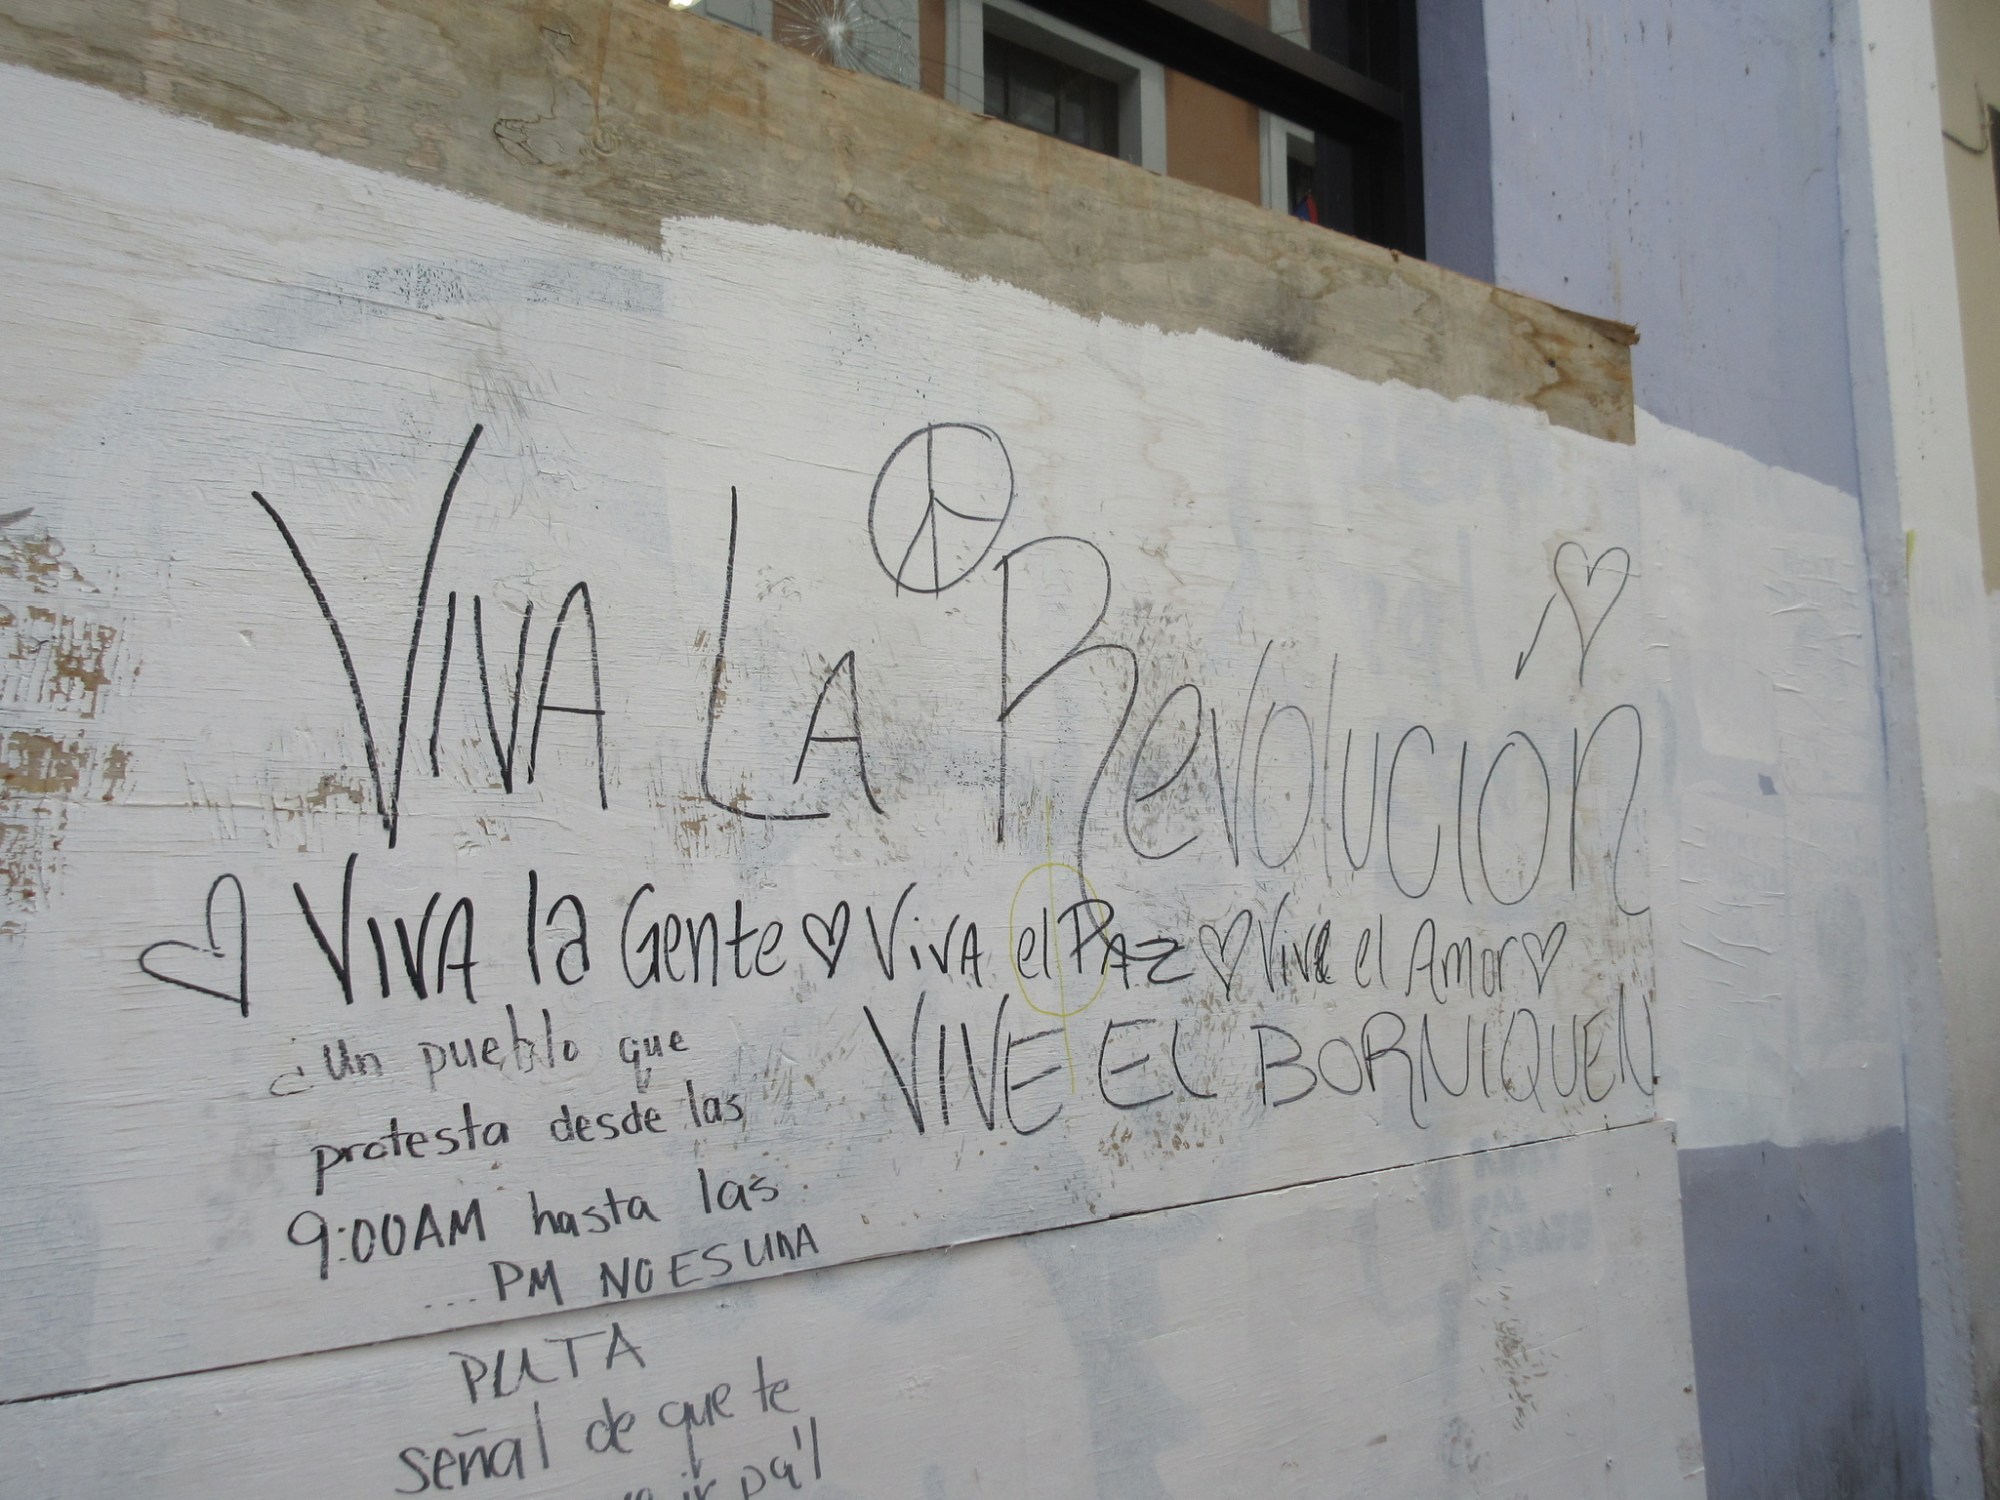 VIVA LA REVOLUCIÓN
VIVA la Gente VIVA el PAZ VIVE el Amor
VIVE EL BORNIQUEN
¿Un pueblo que
protesta desde las
9:00AM hasta las
...PM NO ES UNA
PUTA
señal de que te
ir pa'l